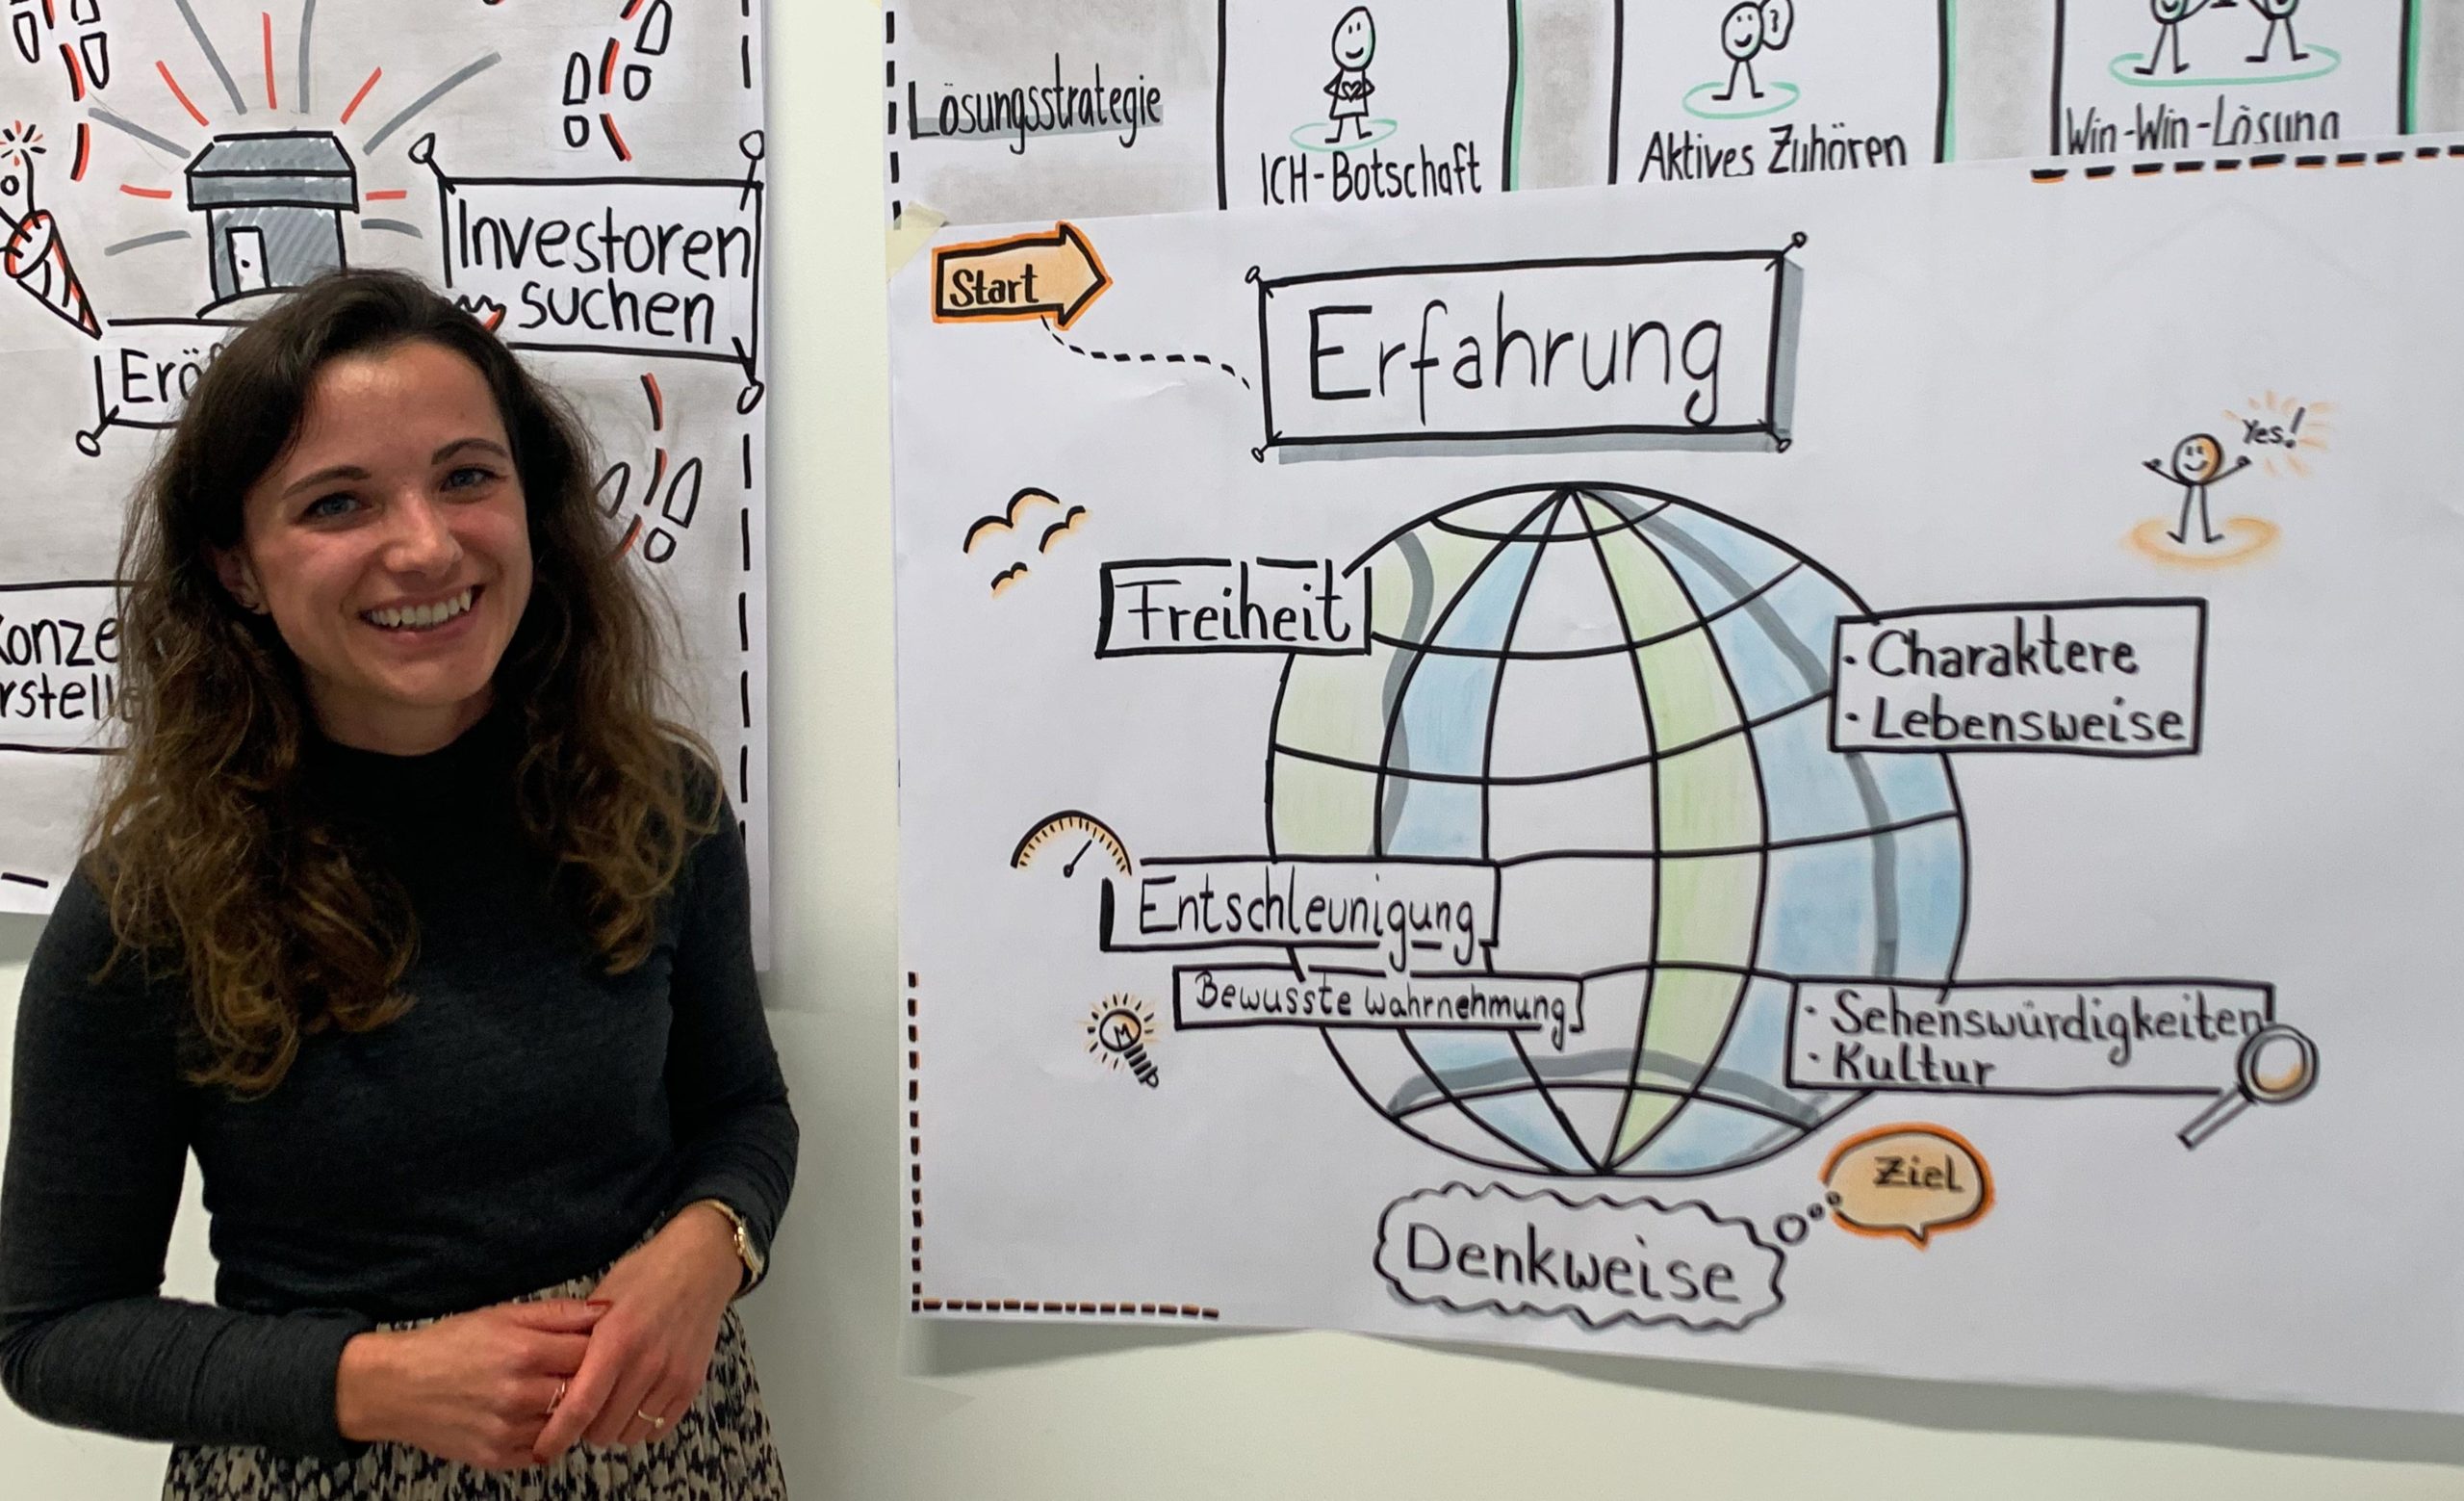 Investoren
suchen
Lösungsstrategie
ICH-Botschaft
Aktives Zuhören
Win-Win-Lösung
Start
Erfahrung
Yes!
Freiheit
· Charaktere
· Lebensweise
Entschleunigung
Bewusste Wahrnehmung
· Sehenswürdigkeiten
· Kultur
Ziel
Denkweise